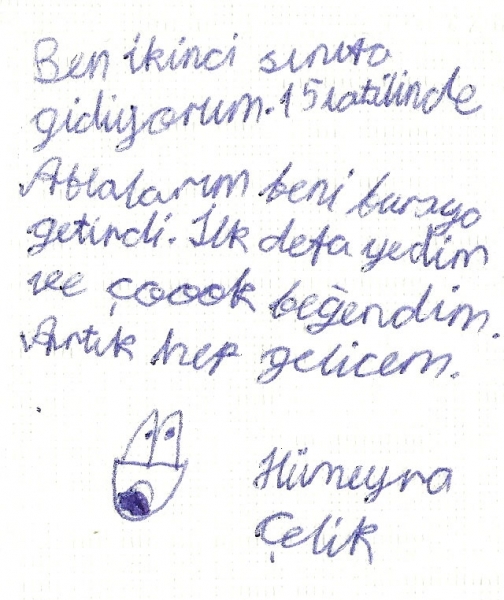 Ben ikinci sınıfa
gidiyorum. 15 tatilinde
Ablalarım beni buraya
getirdi. İlk defa yedim
ve çoook beğendim.
Artık hep gelicem.
Hümeyra
Çelik